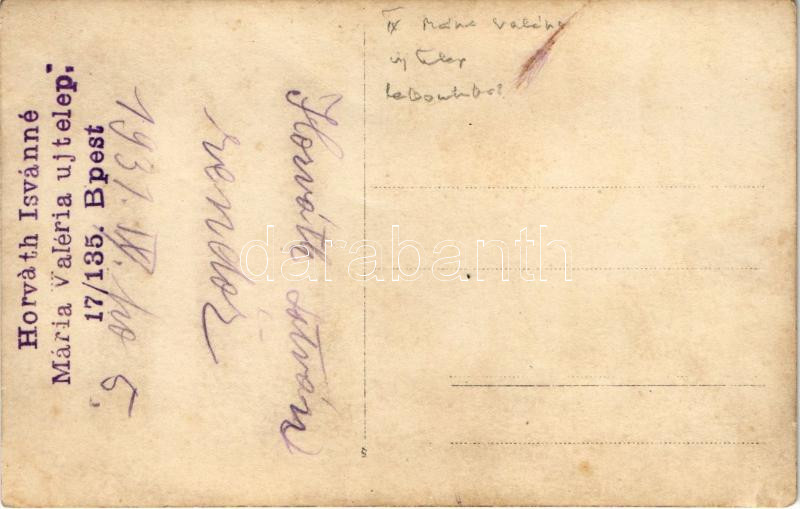 Horváth Isvánné
Mária Valéria ujtelep.
17/135. Bpest
1931. IV. hó 5.
rendőr
Horváth István
IX Mária Valéria
új telep
darabanth